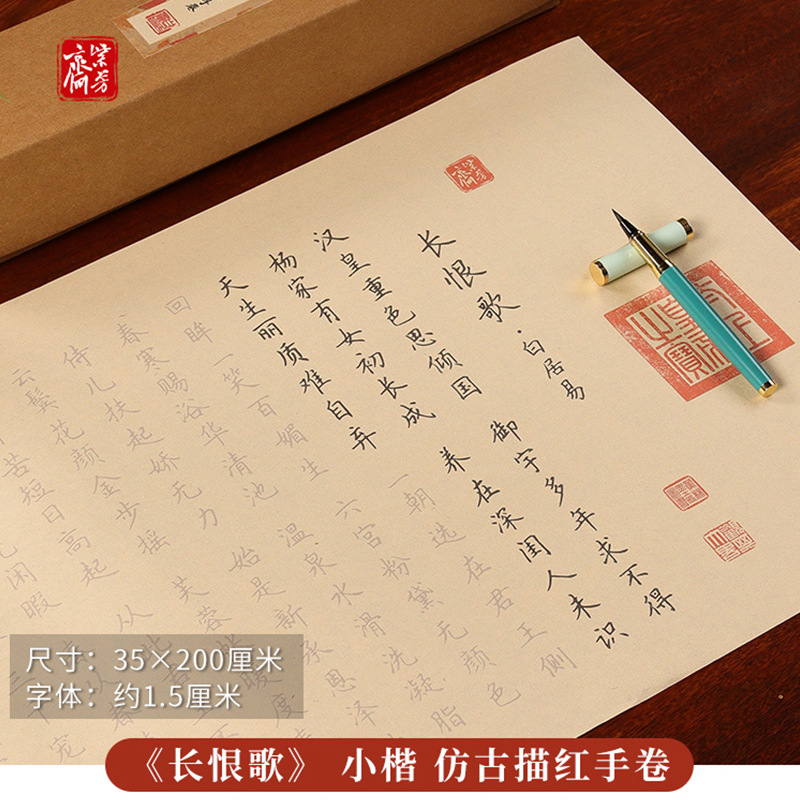 长恨歌·白居易
汉皇重色思倾国 御宇多年求不得
杨家有女初长成 养在深闺人未识
天生丽质难自弃 一朝选在君王侧
回眸一笑百媚生 六宫粉黛无颜色
春寒赐浴华清池 温泉水滑洗凝脂
侍儿扶起娇无力 始是新承恩泽
云鬓花颜金步摇 芙蓉暖度
苦短日高起 从
闲暇
尺寸：35×200厘米
字体：约1.5厘米
《长恨歌》 小楷 仿古描红手卷